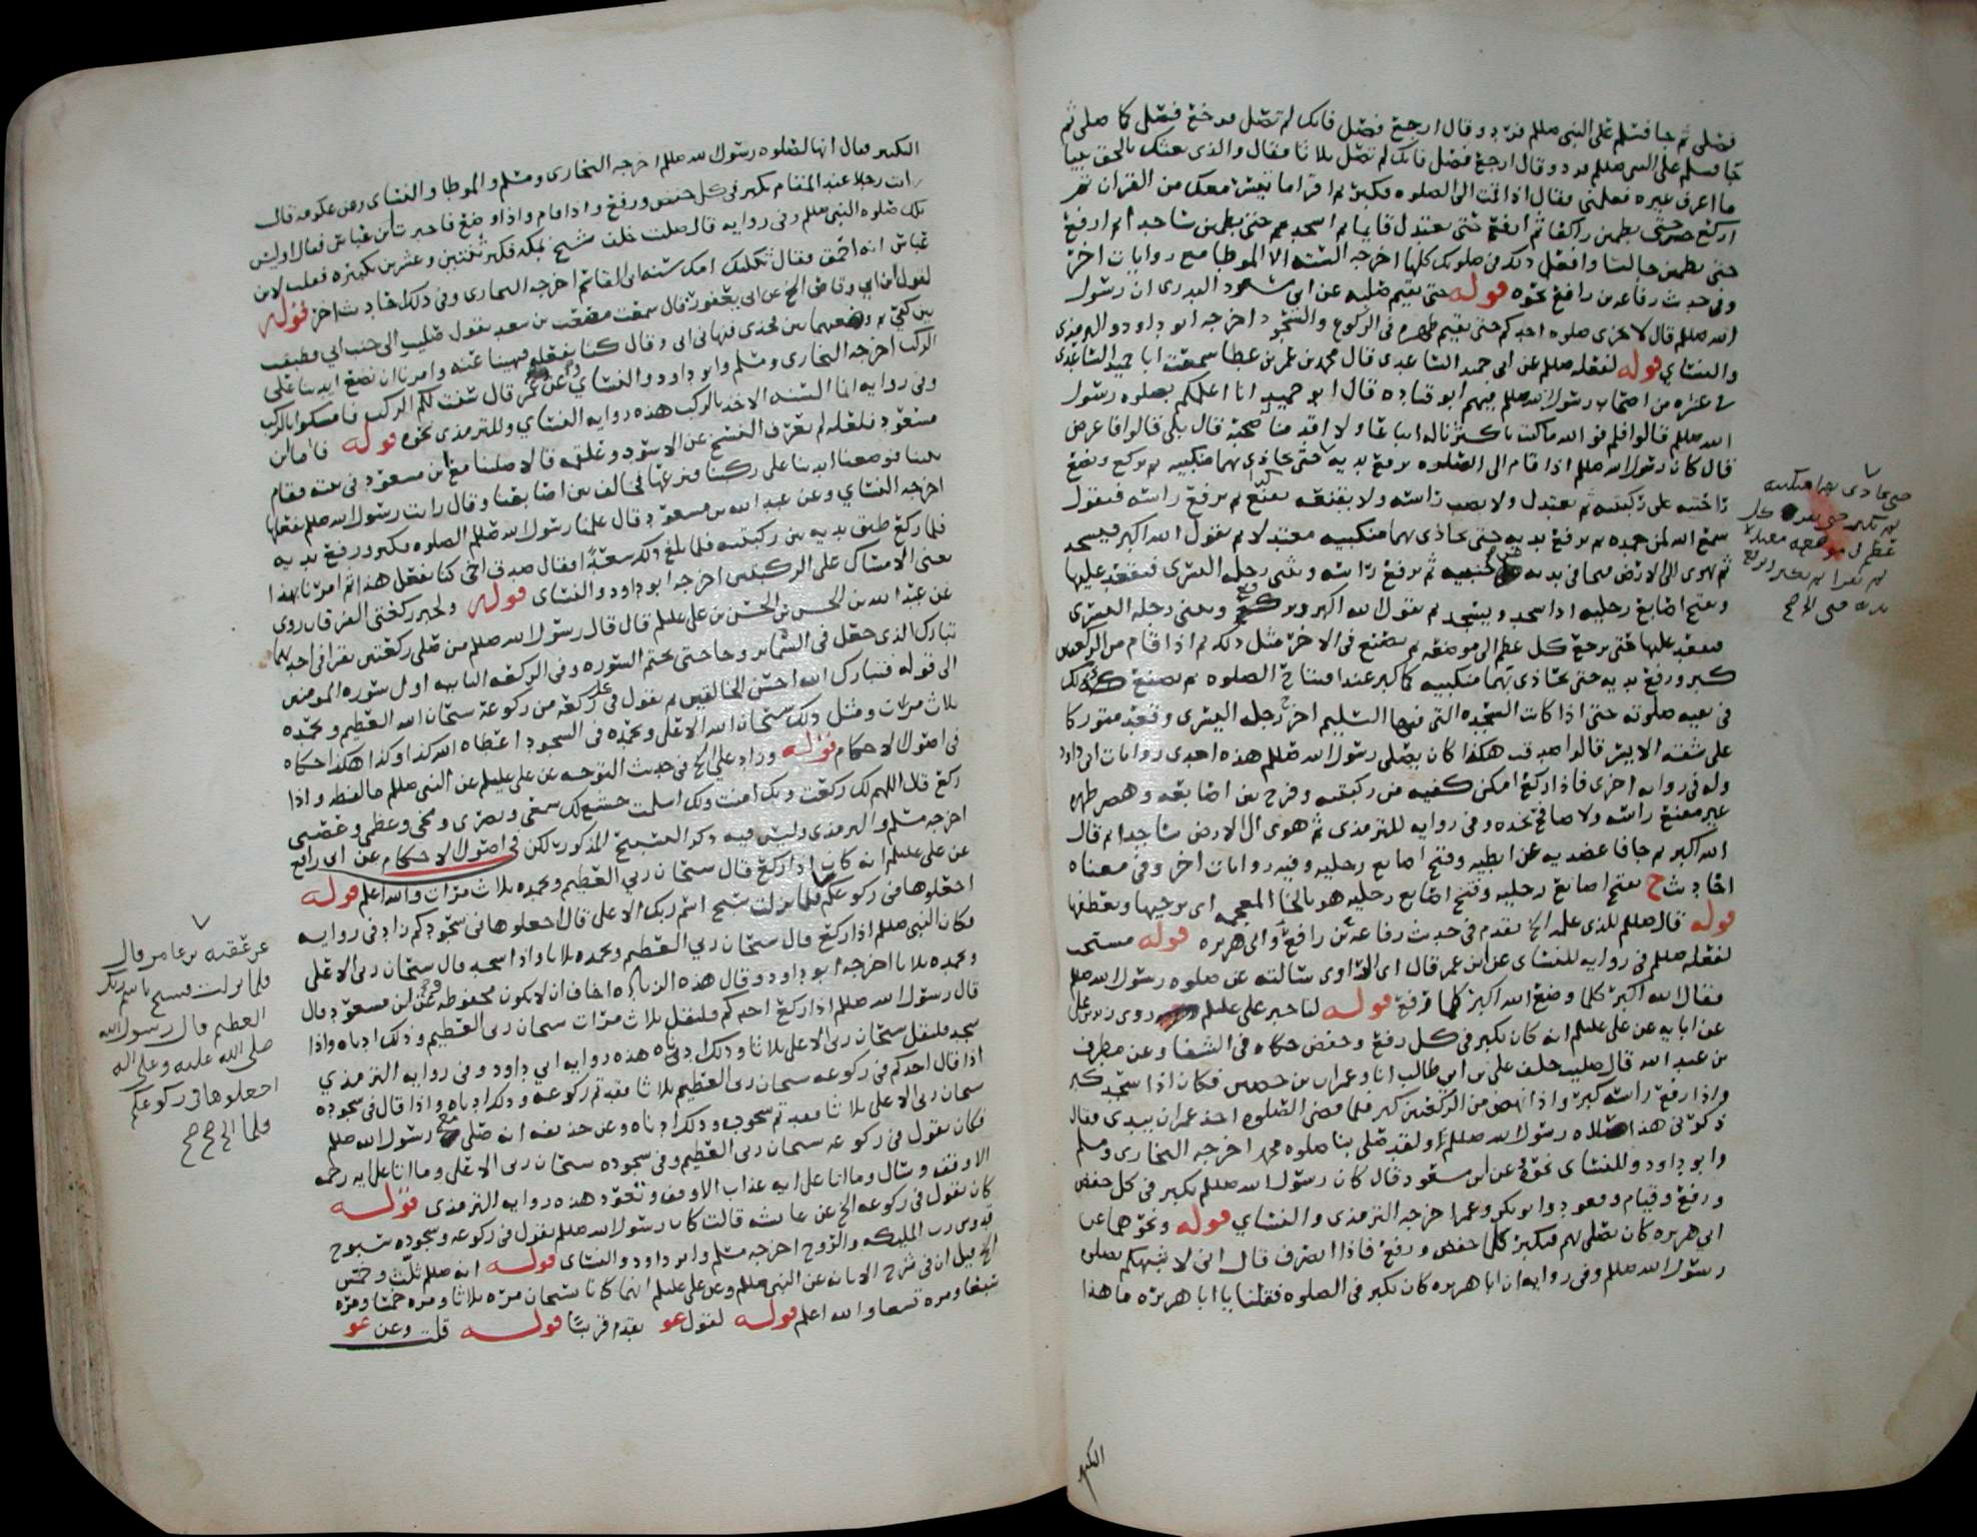 فصلى ثم جا فسلم على النبي صللم فرد وقال ارجع فصل فانك لم تصل فرجع فصلى كما صلى ثم
جا فسلم على النبي صللم فرد وقال ارجع فصل فانك لم تصل ثلاثا فقال والذي بعثك بالحق نبيا
ما اعرف غيره فعلمني فقال اذا قمت الى الصلوه فكبر ثم اقرا ما تيسر معك من القران ثم
اركع حتى تطمين راكعا ثم ارفع حتى تعتدل قايما ثم اسجد حتى تطمين ساجدا ثم ارفع
حتى تطمين جالسا وافعل ذلك في صلوتك كلها اخرجه الستة الا الموطا مع روايات اخر
وفي حديث رفاعه بن رافع نحوه قوله حتى يقيم صلبه عن ابي مسعود البدري ان رسول
الله صللم قال لا تجزي صلوه احدكم حتى يقيم ظهره في الركوع والسجود اخرجه ابو داود والترمذي
والنسائي قوله لفعله صللم عن ابي حميد الساعدي قال محمد بن عمر بن عطا سمعت ابا حميد الساعدي
في عشره من اصحاب رسول الله صللم فيهم ابو قتاده قال ابو حميد انا اعلمكم بصلوه رسول
الله صللم قالوا فلم فو الله ما كنت باكثرنا له اتباعا ولا اقدمنا صحبة قال بلى قالوا فاعرض
قال كان رسول الله صللم اذا قام الى الصلوه يرفع يديه حتى يحاذي بهما منكبيه ثم يركع ويضع
راحتيه على ركبتيه ثم يعتدل ولا ينصب راسه ولا يقنعه ثم يرفع راسه فيقول
سمع الله لمن حمده ثم يرفع يديه حتى يحاذي بهما منكبيه معتدلا ثم يقول الله اكبر فيسجد
ثم يهوي الى الارض فيجافي يديه عن جنبيه ثم يرفع راسه ويثني رجله اليسرى فيقعد عليها
ويفتح اصابع رجليه اذا سجد ويسجد ثم يقول الله اكبر ويرفع ويثني رجله اليسرى
فيقعد عليها حتى يرجع كل عظم الى موضعه ثم يصنع في الاخرى مثل ذلك ثم اذا قام من الركعتين
كبر ورفع يديه حتى يحاذي بهما منكبيه كما كبر عند افتتاح الصلوه ثم يصنع كذلك
في بقيه صلوته حتى اذا كانت السجده التي فيها التسليم اخر رجله اليسرى وقعد متوركا
على شقه الايسر قالوا صدقت هكذا كان يصلي رسول الله صللم هذه احدى روايات ابي داود
وله في روايه اخرى فاذا ركع امكن كفيه من ركبتيه وفرج بين اصابعه وهصر ظهره
غير مقنع راسه ولا صافح بخده وفي روايه للترمذي ثم هوى الى الارض ساجدا ثم قال
الله اكبر ثم جافا عضديه عن ابطيه وفتح اصابع رجليه وفيه روايات اخر وفي معناه
احاديث ح يفتح اصابع رجليه وفتح اصابع رجليه هو بالخا المعجمه اي يوجهها ويعطفها
قوله قال صللم للذي علمه الخ تقدم في حديث رفاعه بن رافع وابي هريره قوله مستحب
لفعله صللم في روايه للنسائي عن ابن عمر قال اي الراوي سالته عن صلوه رسول الله صللم
فقال الله اكبر كلما وضع الله اكبر كلما رفع قوله لنا خبر علي عليلم روى زيد بن علي
عن ابايه عن علي عليلم انه كان يكبر في كل رفع وخفض حكاه في الشفا وعن مطرف
بن عبد الله قال صليت خلف علي بن ابي طالب انا وعمران بن حصين فكان اذا سجد كبر
واذا رفع راسه كبر واذا نهض من الركعتين كبر فلما قضى الصلوه اخذ عمران بيدي فقال
ذكرني هذا صلاه رسول الله صللم او لقد صلى بنا صلوه محمد اخرجه البخاري ومسلم
وابو داود وللنسائي نحوه عن ابن مسعود قال كان رسول الله صللم يكبر في كل خفض
ورفع وقيام وقعود وابو بكر وعمر اخرجه الترمذي والنسائي قوله ونحوهما عن
ابي هريره كان يصلي لهم فيكبر كلما خفض ورفع فاذا انصرف قال اني لاشبهكم بصلوه
رسول الله صللم وفي روايه ان ابا هريره كان يكبر في الصلوه فقلنا يا ابا هريره ما هذا
التكبير
حتى يحاذي بهما منكبيه
ثم يكبر حتى يقر كل
عظم في موضعه معتدلا
ثم يقرا ثم يكبر ويرفع
يديه حتى الخ صح
التكبير فقال انها لصلوه رسول الله صللم اخرجه البخاري ومسلم والموطا والنسائي وعن عكرمه قال
رايت رجلا عند المقام يكبر في كل خفض ورفع واذا قام واذا وضع فاخبرت ابن عباس فقال اوليس
تلك صلوه النبي صللم وفي روايه قال صليت خلف شيخ بمكه فكبر ثنتين وعشرين تكبيره فقلت لابن
عباس انه احمق فقال ثكلتك امك سنه ابي القاسم اخرجه البخاري وفي ذلك احاديث اخر قوله
لقول ابن ابي وقاص الخ عن ابي يعفور قال سمعت مصعب بن سعد يقول صليت الى جنب ابي فطبقت
بين كفي ثم وضعتهما بين فخذي فنهاني ابي وقال كنا نفعله فنهينا عنه وامرنا ان نضع ايدينا على
الركب اخرجه البخاري ومسلم وابو داود والنسائي وعن عمر قال سنت لكم الركب فامسكوا بالركب
وفي روايه انما السنه الاخذ بالركب هذه روايه النسائي وللترمذي نحوه قوله فاما ابن
مسعود فلعله لم يعرف النسخ عن الاسود وعلقمه قالا صلينا مع ابن مسعود في بيته فقام
بيننا فوضعنا ايدينا على ركبنا فنزعها فخالف بين اصابعنا وقال رايت رسول الله صللم يفعله
اخرجه النسائي وعن عبد الله بن مسعود قال علمنا رسول الله صللم الصلوه فكبر ورفع يديه
فلما ركع طبق يديه بين ركبتيه فلما بلغ ذلك سعدا فقال صدق اخي كنا نفعل هذا ثم امرنا بهذا
يعني الامساك على الركبتين اخرجه ابو داود والنسائي قوله ولخبر ركعتي الفرقان روى
عن عبد الله بن الحسن بن الحسن بن علي عليلم قال قال رسول الله صللم من صلى ركعتين يقرا في احديهما
تبارك الذي جعل في السماء بروجا حتى يختم السوره وفي الركعه الثانيه اول سوره المومنين
الى قوله فتبارك الله احسن الخالقين ثم يقول في كل ركعه من ركوعه سبحان الله العظيم وبحمده
ثلاث مرات ومثل ذلك سبحان الله الاعلى وبحمده في السجود اعطاه الله كذا وكذا هكذا حكاه
في اصول الاحكام قوله وزاد علي الخ في حديث التوجه عن علي عليلم عن النبي صللم ما لفظه واذا
ركع قال اللهم لك ركعت وبك امنت ولك اسلمت خشع لك سمعي وبصري ومخي وعظمي وعصبي
اخرجه مسلم والترمذي وليس فيه ذكر التسبيح المذكور لكن في اصول الاحكام عن ابي رافع
عن علي عليلم انه كان اذا ركع قال سبحان ربي العظيم وبحمده ثلاث مرات والله اعلم قوله
اجعلوها في ركوعكم فلما نزلت سبح اسم ربك الاعلى قال اجعلوها في سجودكم زاد في روايه
فكان النبي صللم اذا ركع قال سبحان ربي العظيم وبحمده ثلاثا واذا سجد قال سبحان ربي الاعلى
وبحمده ثلاثا اخرجه ابو داود وقال هذه الزياده اخاف ان لا يكون محفوظه وعن ابن مسعود قال
قال رسول الله صللم اذا ركع احدكم فليقل ثلاث مرات سبحان ربي العظيم وذلك ادناه واذا
سجد فليقل سبحان ربي الاعلى ثلاثا وذلك ادناه هذه روايه ابي داود وفي روايه الترمذي
اذا قال احدكم في ركوعه سبحان ربي العظيم ثلاثا فقد تم ركوعه وذلك ادناه واذا قال في سجوده
سبحان ربي الاعلى ثلاثا فقد تم سجوده وذلك ادناه وعن حذيفه انه صلى مع رسول الله صللم
فكان يقول في ركوعه سبحان ربي العظيم وفي سجوده سبحان ربي الاعلى وما اتى على ايه رحمه
الا وقف وسال وما اتى على ايه عذاب الا وقف وتعوذ هذه روايه الترمذي قوله
كان يقول في ركوعه الخ عن عايشه قالت كان رسول الله صللم يقول في ركوعه وسجوده سبوح
قدوس رب الملئكه والروح اخرجه مسلم وابو داود والنسائي قوله انه صللم ثلث وخمس
الخ قيل ان في شرح الابانه عن النبي صللم وعن علي عليلم انهما كانا يسبحان مره ثلاثا ومره خمسا ومره
سبعا ومره تسعا والله اعلم قوله لقول عو تقدم قريبا قوله قلت وعن عو
عن عقبه بن عامر قال
فلما نزلت فسبح باسم ربك
العظيم قال رسول الله
صلى الله عليه وعلى اله
اجعلوها في ركوعكم
فلما الخ صح صح